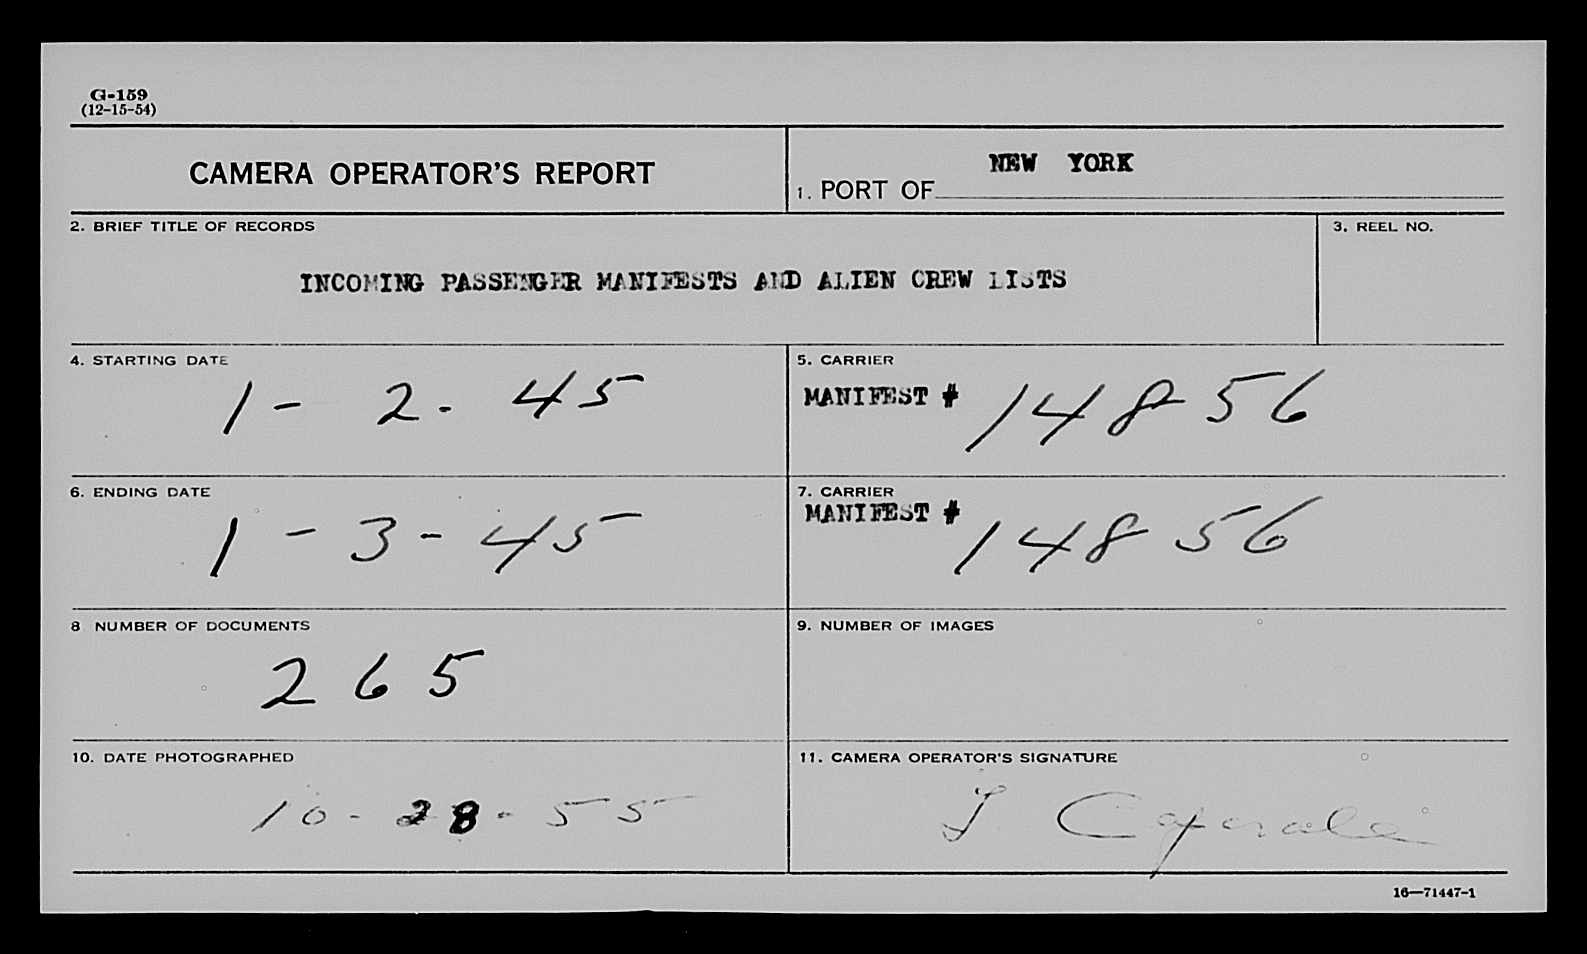 G-159
(12-15-54)
CAMERA OPERATOR'S REPORT
NEW YORK
1. PORT OF
2. BRIEF TITLE OF RECORDS
3. REEL NO.
INCOMING PASSENGER MANIFESTS AND ALIEN CREW LISTS
4. STARTING DATE
1 - 2 - 45
5. CARRIER
MANIFEST # 14856
6. ENDING DATE
1 - 3 - 45
7. CARRIER
MANIFEST # 14856
8 NUMBER OF DOCUMENTS
265
9. NUMBER OF IMAGES
10. DATE PHOTOGRAPHED
10 - 28 - 55
11. CAMERA OPERATOR'S SIGNATURE
16—71447-1